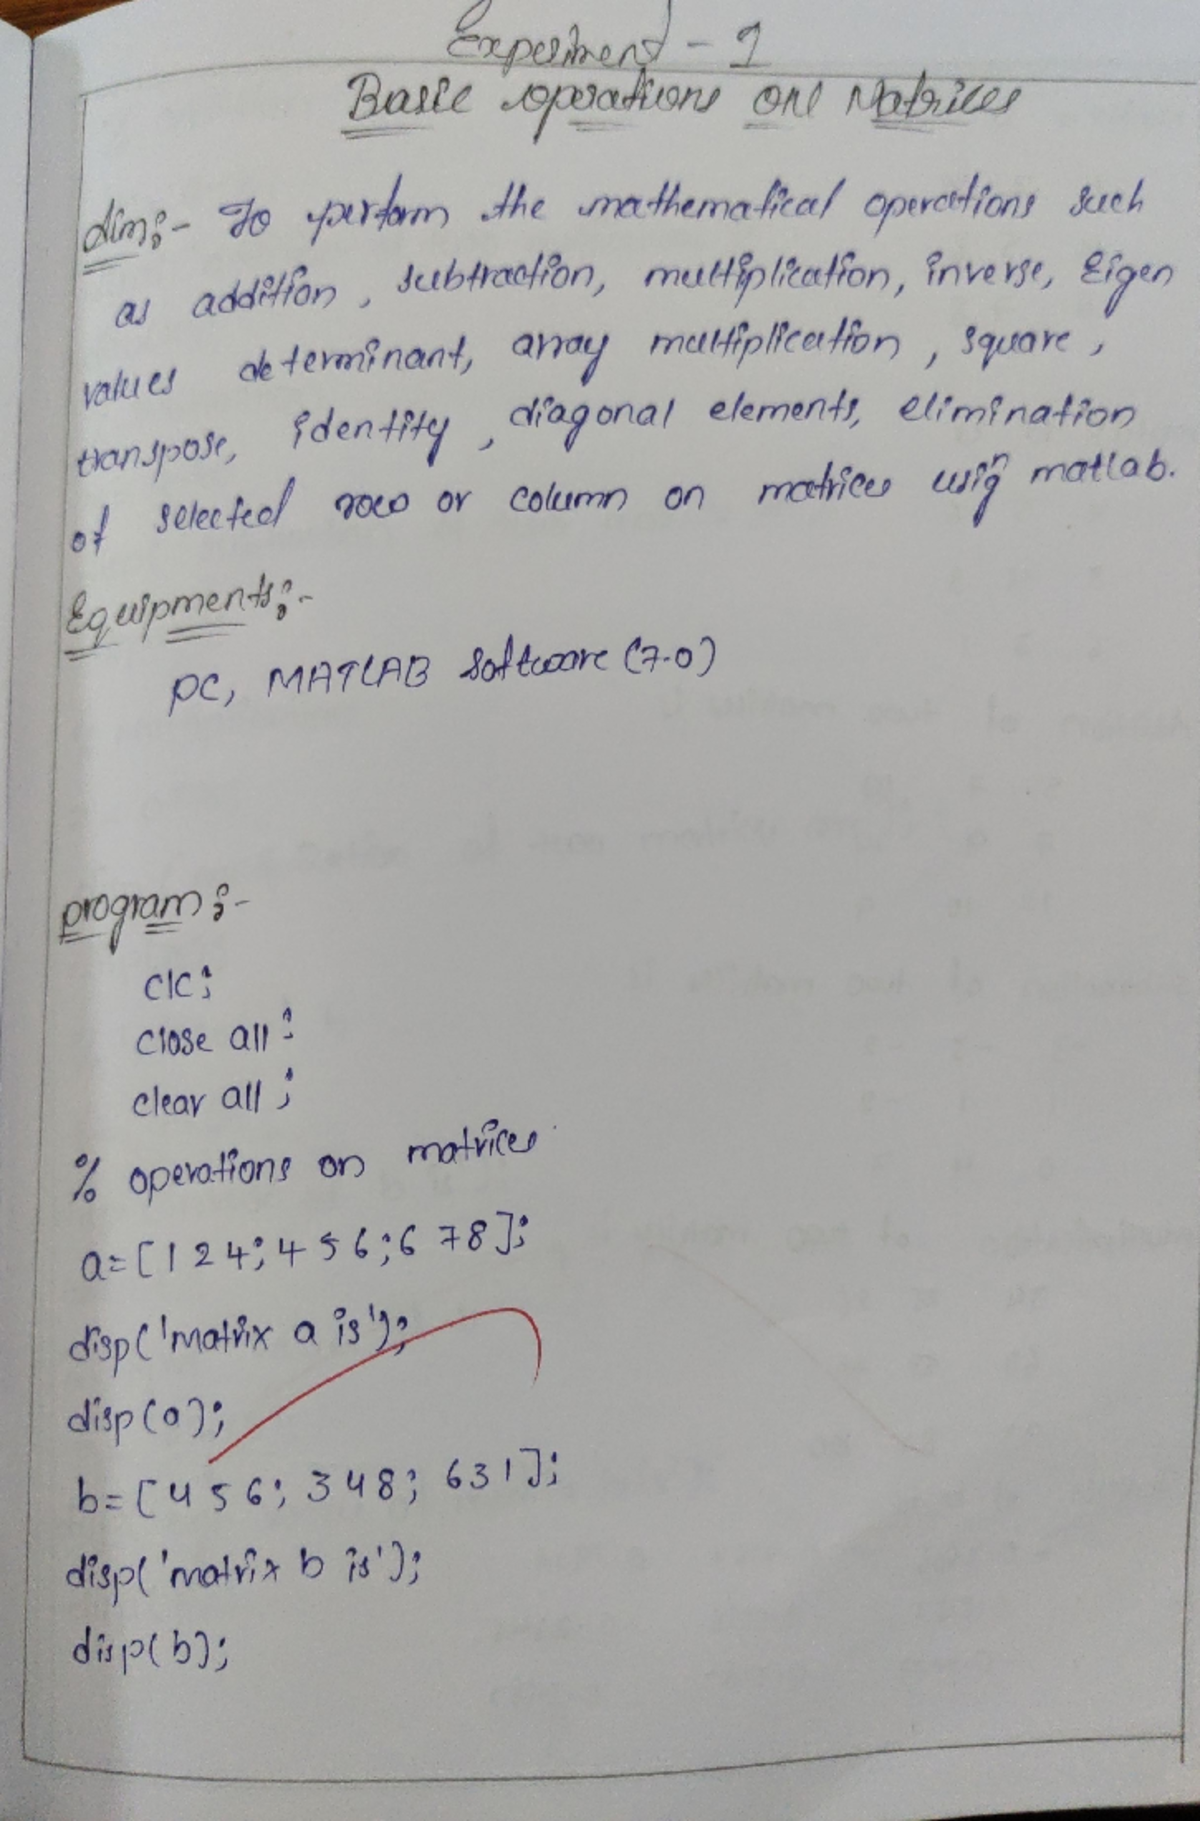 Experiment - 1
Basic operations on Matrices
Aim:- To perform the mathematical operations such
as addition, subtraction, multiplication, inverse, Eigen
values determinant, array multiplication, square,
transpose, identity, diagonal elements, elimination
of selected row or column on matrices using matlab.
Equipments:-
PC, MATLAB Software (7.0)
program:-
clc;
close all;
clear all;
% operations on matrices
a=[1 2 4; 4 5 6; 6 7 8];
disp('matrix a is');
disp(a);
b=[4 5 6; 3 4 8; 6 3 1];
disp('matrix b is');
disp(b);